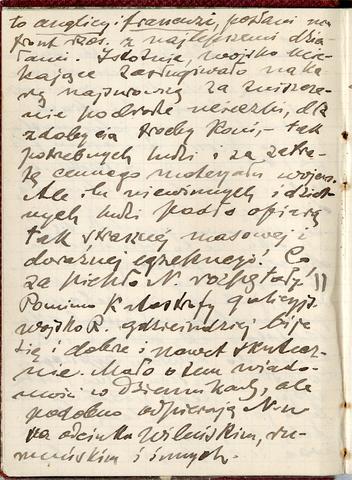 to anglicy i francuzi, posłani na
front ros. z najlepszemi dzia-
łami. Istotnie, wojsko ucie-
kające zasługiwało na ka-
rę najsurowszą za zniszcze-
nie podczas ucieczki, dla
zdobycia trochy koni, tak
potrzebnych ludzi i za zatra-
tę cennego materyału wojen.
Ale ilu niewinnych i dziel-
nych ludzi padło ofiarą
tak strasznej masowej i
doraźnej egzekucyi! Co
za piekło N. rozpętały!
Pomimo katastrofy galicyjs.
wojsko R. gdzieindziej bije
się i dobrze i nawet skutecz-
nie. Mało o tem wiado-
mości w dziennikach, ale
podobno odpierają N-w
na odcinku Wileńskim, ru-
muńskim i innych.